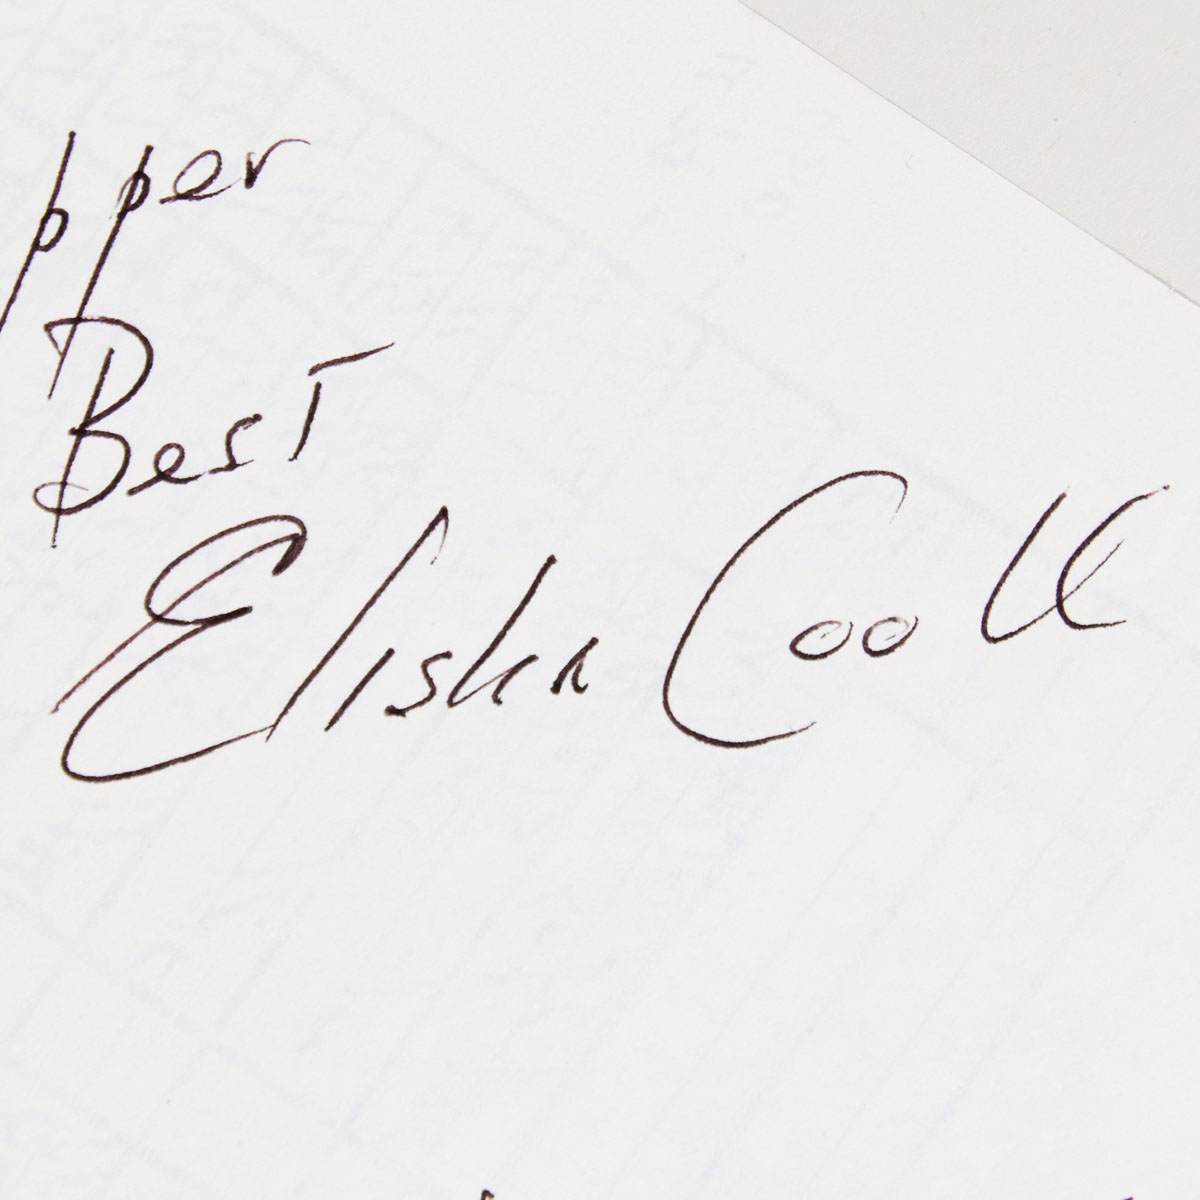 pper
Best
Elisha Cook